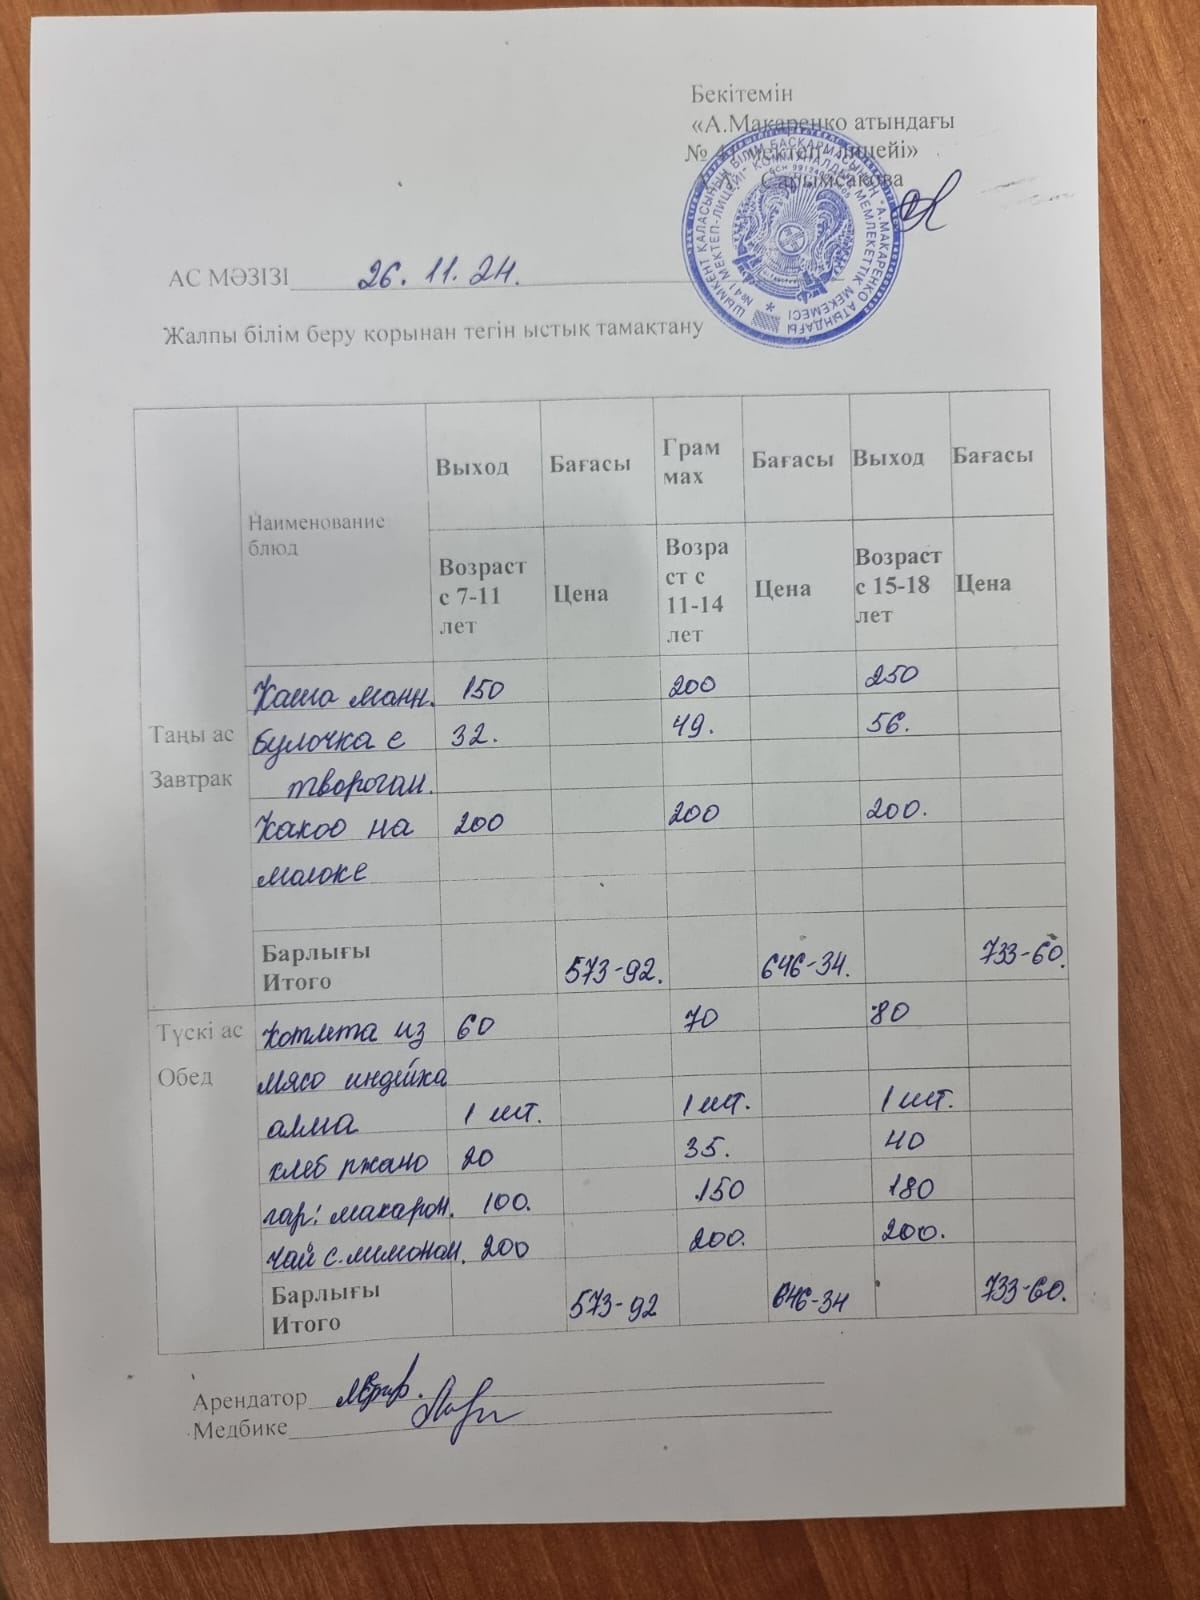 Бекітемін
«А.Макаренко атындағы
№ 41 мектеп- лицейі»
Сарымсакова
АС МӘЗІЗІ 26. 11. 24.
Жалпы білім беру қорынан тегін ыстық тамақтану
Наименование блюд
Выход Бағасы Грам мах Бағасы Выход Бағасы
Возраст с 7-11 лет Цена Возра ст с 11-14 лет Цена Возраст с 15-18 лет Цена
Таңы ас
Завтрак
Каша манн. 150 200 250
булочка с 32. 49. 56.
творогом.
Какао на 200 200 200.
молоке
Барлығы
Итого 573-92. 646-34. 733-60.
Түскі ас
Обед
Котлета из 60 70 80
мясо индейка
алма 1 шт. 1 шт. 1 шт.
хлеб ржано 20 35. 40
гар: макарон. 100. 150 180
чай с лимоном. 200 200. 200.
Барлығы
Итого 573-92 646-34 733-60.
Арендатор
Медбике